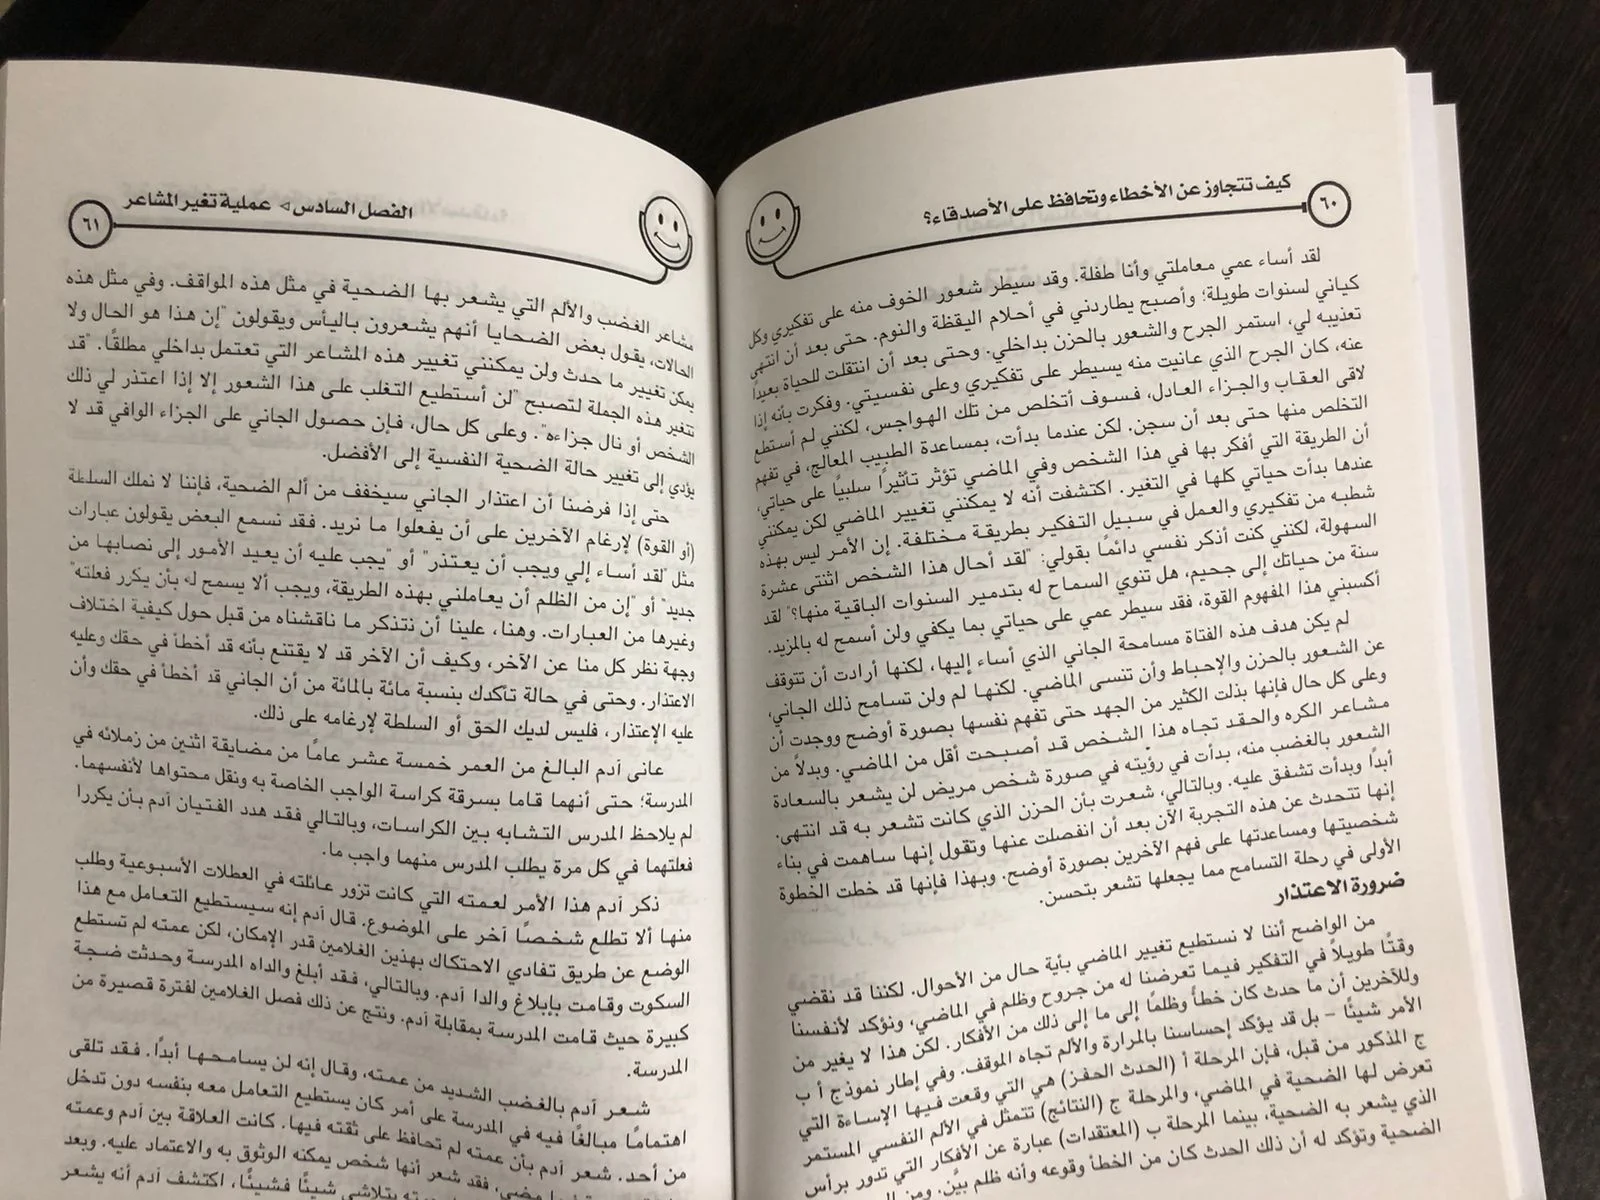 كيف تتجاوز عن الأخطاء وتحافظ على الأصدقاء؟
٦٠
لقد أساء عمي معاملتي وأنا طفلة. وقد سيطر شعور الخوف منه على تفكيري وكل
كياني لسنوات طويلة؛ وأصبح يطاردني في أحلام اليقظة والنوم. حتى بعد أن انتهى
تعذيبه لي، استمر الجرح والشعور بالحزن بداخلي. وحتى بعد أن انتقلت للحياة بعيداً
عنه، كان الجرح الذي عانيت منه يسيطر على تفكيري وعلى نفسيتي. وفكرت بأنه إذا
لاقى العقاب والجزاء العادل، فسوف أتخلص من تلك الهواجس، لكنني لم أستطع
التخلص منها حتى بعد أن سجن. لكن عندما بدأت، بمساعدة الطبيب المعالج، في تفهم
أن الطريقة التي أفكر بها في هذا الشخص وفي الماضي تؤثر تأثيرًا سلبيًا على حياتي،
عندها بدأت حياتي كلها في التغير. اكتشفت أنه لا يمكنني تغيير الماضي لكن يمكنني
شطبه من تفكيري والعمل في سبيل التفكير بطريقة مختلفة. إن الأمر ليس بهذه
السهولة، لكنني كنت أذكر نفسي دائمًا بقولي: "لقد أحال هذا الشخص اثنتى عشرة
سنة من حياتك إلى جحيم، هل تنوي السماح له بتدمير السنوات الباقية منها؟" لقد
أكسبني هذا المفهوم القوة، فقد سيطر عمي على حياتي بما يكفي ولن أسمح له بالمزيد.
لم يكن هدف هذه الفتاة مسامحة الجاني الذي أساء إليها، لكنها أرادت أن تتوقف
عن الشعور بالحزن والإحباط وأن تنسى الماضي. لكنها لم ولن تسامح ذلك الجاني،
وعلى كل حال فإنها بذلت الكثير من الجهد حتى تفهم نفسها بصورة أوضح ووجدت أن
مشاعر الكره والحقد تجاه هذا الشخص قد أصبحت أقل من الماضي. وبدلاً من
الشعور بالغضب منه، بدأت في رؤيته في صورة شخص مريض لن يشعر بالسعادة
أبدًا وبدأت تشفق عليه. وبالتالي، شعرت بأن الحزن الذي كانت تشعر به قد انتهى.
إنها تتحدث عن هذه التجربة الآن بعد أن انفصلت عنها وتقول إنها ساهمت في بناء
شخصيتها ومساعدتها على فهم الآخرين بصورة أوضح. وبهذا فإنها قد خطت الخطوة
الأولى في رحلة التسامح مما يجعلها تشعر بتحسن.
ضرورة الاعتذار
من الواضح أننا لا نستطيع تغيير الماضي بأية حال من الأحوال. لكننا قد نقضي
وقتًا طويلاً في التفكير فيما تعرضنا له من جروح وظلم في الماضي، ونؤكد لأنفسنا
وللآخرين أن ما حدث كان خطأً وظلمًا إلى ما إلى ذلك من الأفكار. لكن هذا لا يغير من
الأمر شيئًا – بل قد يؤكد إحساسنا بالمرارة والألم تجاه الموقف. وفي إطار نموذج أ ب
ج المذكور من قبل، فإن المرحلة أ (الحدث الحفز) هي التي وقعت فيها الإساءة التي
تعرض لها الضحية في الماضي، والمرحلة ج (النتائج) تتمثل في الألم النفسي المستمر
الذي يشعر به الضحية، بينما المرحلة ب (المعتقدات) عبارة عن الأفكار التي تدور برأس
الضحية وتؤكد له أن ذلك الحدث كان من الخطأ وقوعه وأنه ظلم بيّن. ومن
الفصل السادس ◁ عملية تغير المشاعر
٦١
مشاعر الغضب والألم التي يشعر بها الضحية في مثل هذه المواقف. وفي مثل هذه
الحالات، يقول بعض الضحايا أنهم يشعرون باليأس ويقولون "إن هذا هو الحال ولا
يمكن تغيير ما حدث ولن يمكنني تغيير هذه المشاعر التي تعتمل بداخلي مطلقًا. "قد
تتغير هذه الجملة لتصبح "لن أستطيع التغلب على هذا الشعور إلا إذا اعتذر لي ذلك
الشخص أو نال جزاءه". وعلى كل حال، فإن حصول الجاني على الجزاء الوافي قد لا
يؤدي إلى تغيير حالة الضحية النفسية إلى الأفضل.
حتى إذا فرضنا أن اعتذار الجاني سيخفف من ألم الضحية، فإننا لا نملك السلطة
(أو القوة) لإرغام الآخرين على أن يفعلوا ما نريد. فقد نسمع البعض يقولون عبارات
مثل "لقد أساء إلي ويجب أن يعتذر" أو "يجب عليه أن يعيد الأمور إلى نصابها من
جديد" أو "إن من الظلم أن يعاملني بهذه الطريقة، ويجب ألا يسمح له بأن يكرر فعلته"
وغيرها من العبارات. وهنا، علينا أن نتذكر ما ناقشناه من قبل حول كيفية اختلاف
وجهة نظر كل منا عن الآخر، وكيف أن الآخر قد لا يقتنع بأنه قد أخطأ في حقك وعليه
الاعتذار. وحتى في حالة تأكدك بنسبة مائة بالمائة من أن الجاني قد أخطأ في حقك وأن
عليه الإعتذار، فليس لديك الحق أو السلطة لإرغامه على ذلك.
عانى آدم البالغ من العمر خمسة عشر عامًا من مضايقة اثنين من زملائه في
المدرسة؛ حتى أنهما قاما بسرقة كراسة الواجب الخاصة به ونقل محتواها لأنفسهما.
لم يلاحظ المدرس التشابه بين الكراسات، وبالتالي فقد هدد الفتيان آدم بأن يكررا
فعلتهما في كل مرة يطلب المدرس منهما واجب ما.
ذكر آدم هذا الأمر لعمته التي كانت تزور عائلته في العطلات الأسبوعية وطلب
منها ألا تطلع شخصًا آخر على الموضوع. قال آدم إنه سيستطيع التعامل مع هذا
الوضع عن طريق تفادي الاحتكاك بهذين الغلامين قدر الإمكان، لكن عمته لم تستطع
السكوت وقامت بإبلاغ والدا آدم. وبالتالي، فقد أبلغ والداه المدرسة وحدثت ضجة
كبيرة حيث قامت المدرسة بمقابلة آدم. ونتج عن ذلك فصل الغلامين لفترة قصيرة من
المدرسة.
شعر آدم بالغضب الشديد من عمته، وقال إنه لن يسامحها أبدًا. فقد تلقى
اهتمامًا مبالغًا فيه في المدرسة على أمر كان يستطيع التعامل معه بنفسه دون تدخل
من أحد. شعر آدم بأن عمته لم تحافظ على ثقته فيها. كانت العلاقة بين آدم وعمته
مضى، فقد شعر أنها شخص يمكنه الوثوق به والاعتماد عليه. وبعد
يتلاشى شيئًا فشيئًا، اكتشف آدم أنه يشعر